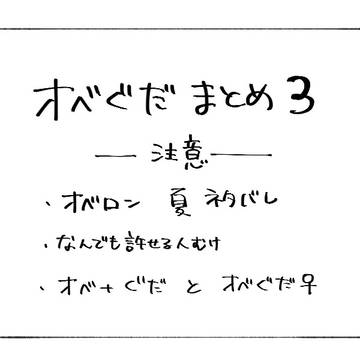 オベぐだ まとめ 3
― 注意 ―
・オベロン 夏 ネタバレ
・なんでも許せる人むけ
・オベ+ぐだ と オベぐだ♀